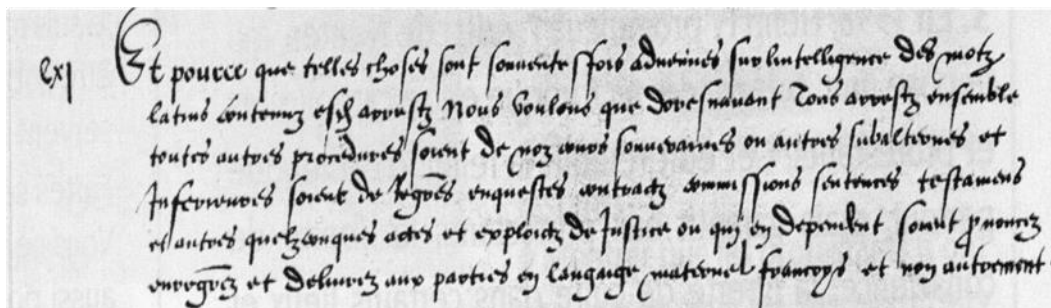 cxj Et pource que telles choses sont souventesffois advenues sur lintelligence des motz
latins contenuz esd arrestz Nous voulons que doresnavant Tous arrestz ensemble
toutes autres procedures soient de noz cours souveraines ou autres subalternes et
Inferieures soient de Regres enquestes contractz commissions sentences testamens
et autres quelzconques actes et exploictz de Justice ou qui en dependent soient pnoncez
enregrez et delivrez aux parties en langaige maternel francoys et non autrement